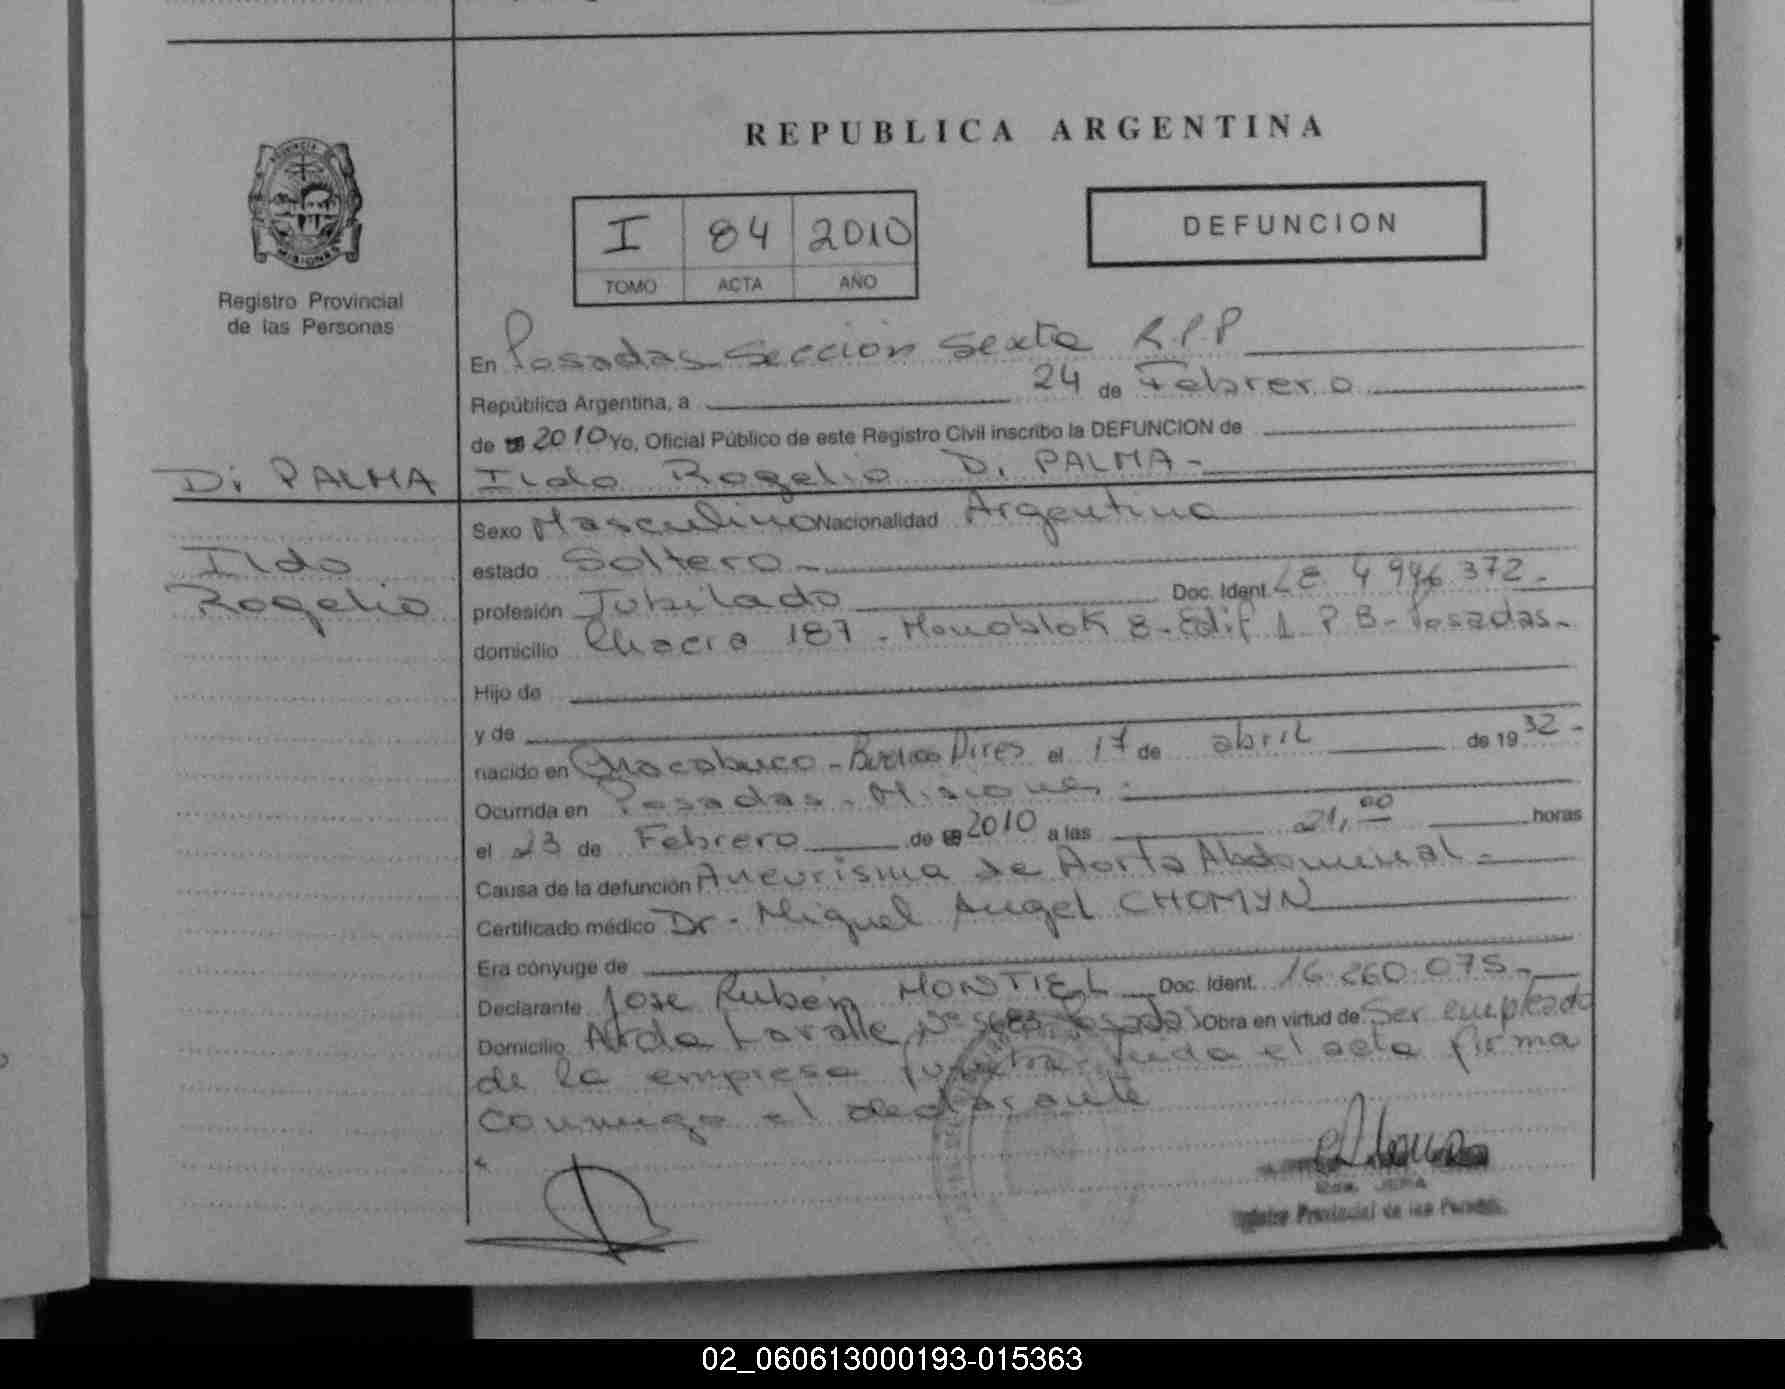 REPUBLICA ARGENTINA
PROVINCIA DE
MISIONES
Registro Provincial
de las Personas
I 84 2010
TOMO ACTA AÑO
DEFUNCION
En Posadas Sección Sexta R.P.P
República Argentina, a 24 de Febrero
de 2010 Yo, Oficial Público de este Registro Civil inscribo la DEFUNCION de
Di PALMA
Ildo Rogelio Di PALMA-
Ildo
Rogelio
Sexo Masculino Nacionalidad Argentina
estado Soltero-
profesión Jubilado Doc. Ident. LE 4 946 372-
domicilio Chacra 187 - Monoblok 8 - Edif 1 P B - Posadas-
Hijo de
y de
nacido en Chacabuco - Buenos Aires el 17 de abril de 19 32-
Ocurrida en Posadas - Misiones-
el 23 de Febrero de 2010 a las 21,00 horas
Causa de la defunción Aneurisma de Aorta Abdominal-
Certificado médico Dr - Miguel Angel CHOMYN
Era cónyuge de
Declarante Jose Rubén MONTIEL Doc. Ident. 16 260 075-
Domicilio Avda Lavalle Nº Posadas Obra en virtud de Ser empleado
de la empresa el acta firma
conmigo el declarante
Registro Provincial de las Personas
02_060613000193-015363